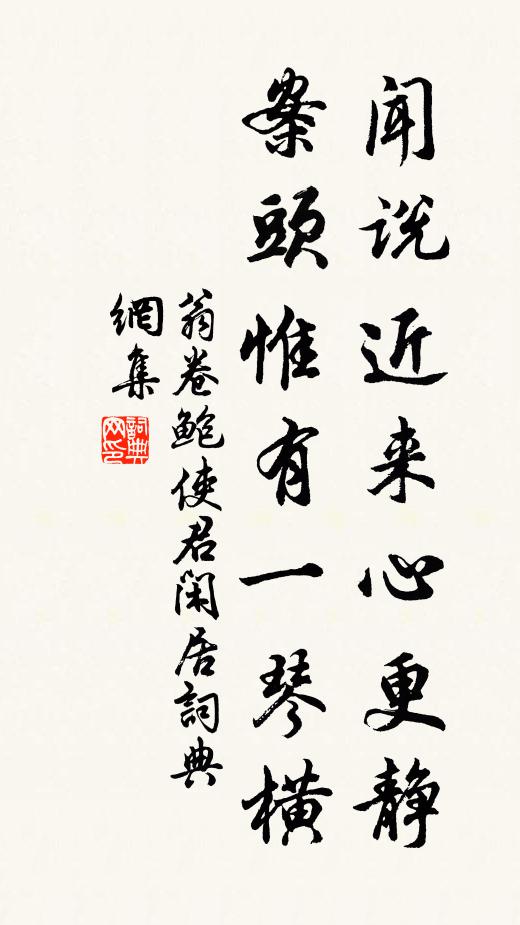 闻说近来心更静
案頭惟有一琴横
翁卷鲍使君闲居詞典
網集
詞典網印